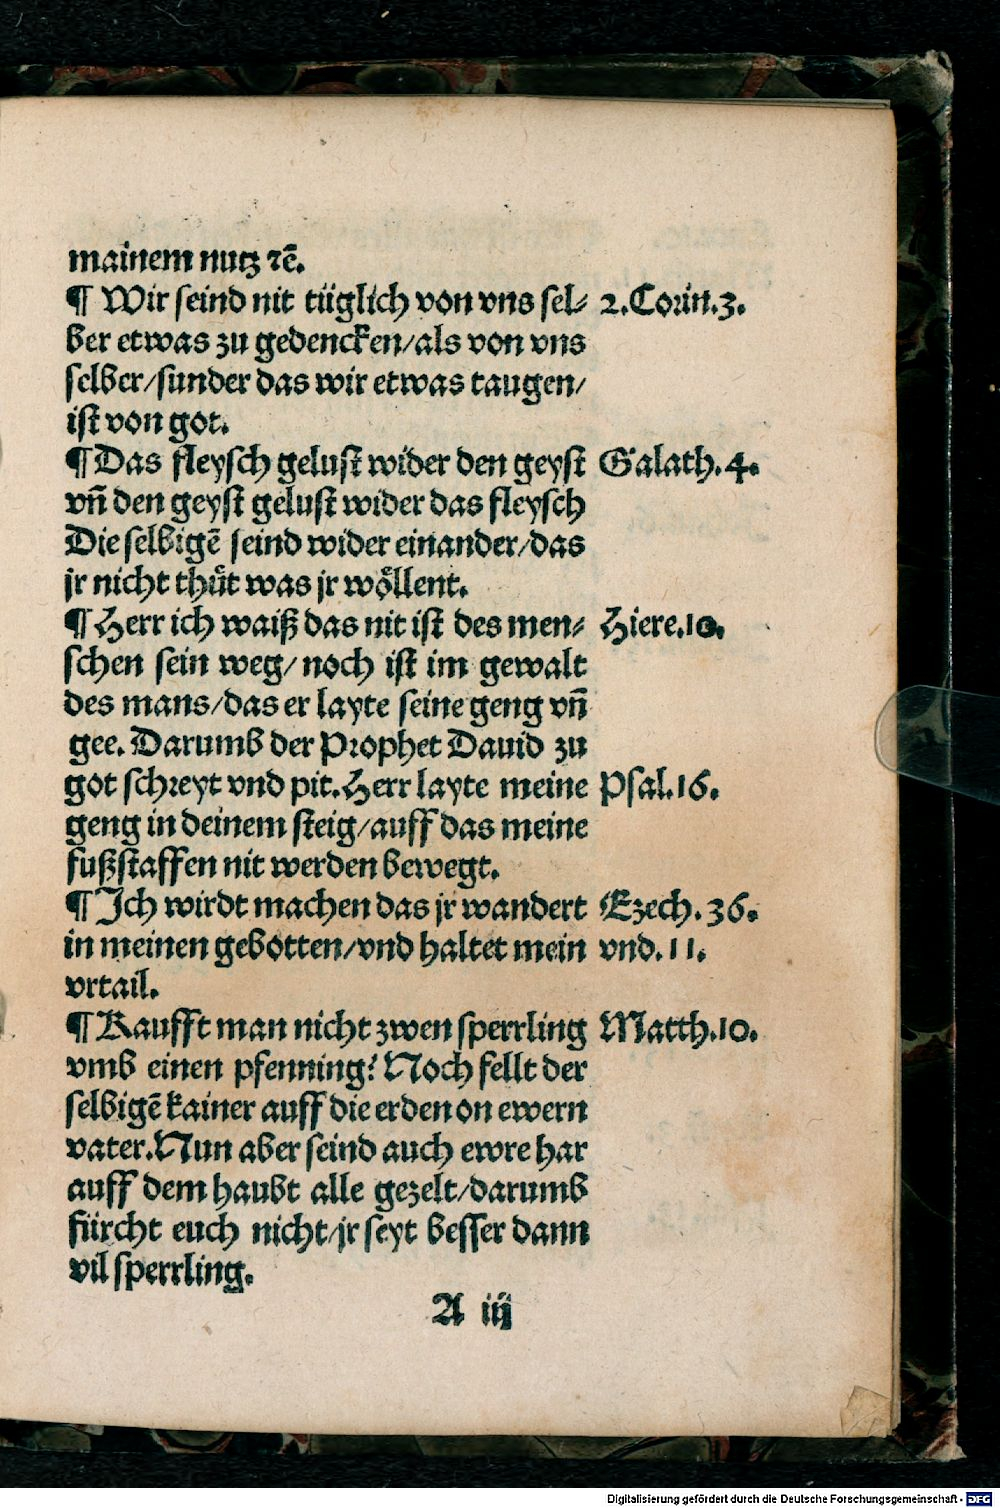 mainem nutz ꝛc̄.
¶ Wir seind nit tüglich von vns sel⸗ 2.Corin.3.
ber etwas zu gedencken/als von vns
selber/sunder das wir etwas taugen/
ist von got.
¶ Das fleysch gelust wider den geyst Galath.4.
vñ den geyst gelust wider das fleysch
Die selbigē seind wider einander/das
jr nicht thuͤt was jr woͤllent.
¶ Herr ich waiß das nit ist des men⸗ Hiere.10.
schen sein weg/noch ist im gewalt
des mans/das er layte seine geng vñ
gee. Darumb der Prophet Dauid zu
got schreyt vnd pit. Herr layte meine Psal.16.
geng in deinem steig/auff das meine
fußstaffen nit werden bewegt.
¶ Ich wirdt machen das jr wandert Ezech.36.
in meinen gebotten/vnd haltet mein vnd.11.
vrtail.
¶ Kaufft man nicht zwen sperrling Matth.10.
vmb einen pfenning? Noch fellt der
selbigē kainer auff die erden on ewern
vater. Nun aber seind auch ewre har
auff dem haubt alle gezelt/darumb
fürcht euch nicht/jr seyt besser dann
vil sperrling.
A iij
Digitalisierung gefördert durch die Deutsche Forschungsgemeinschaft - DFG